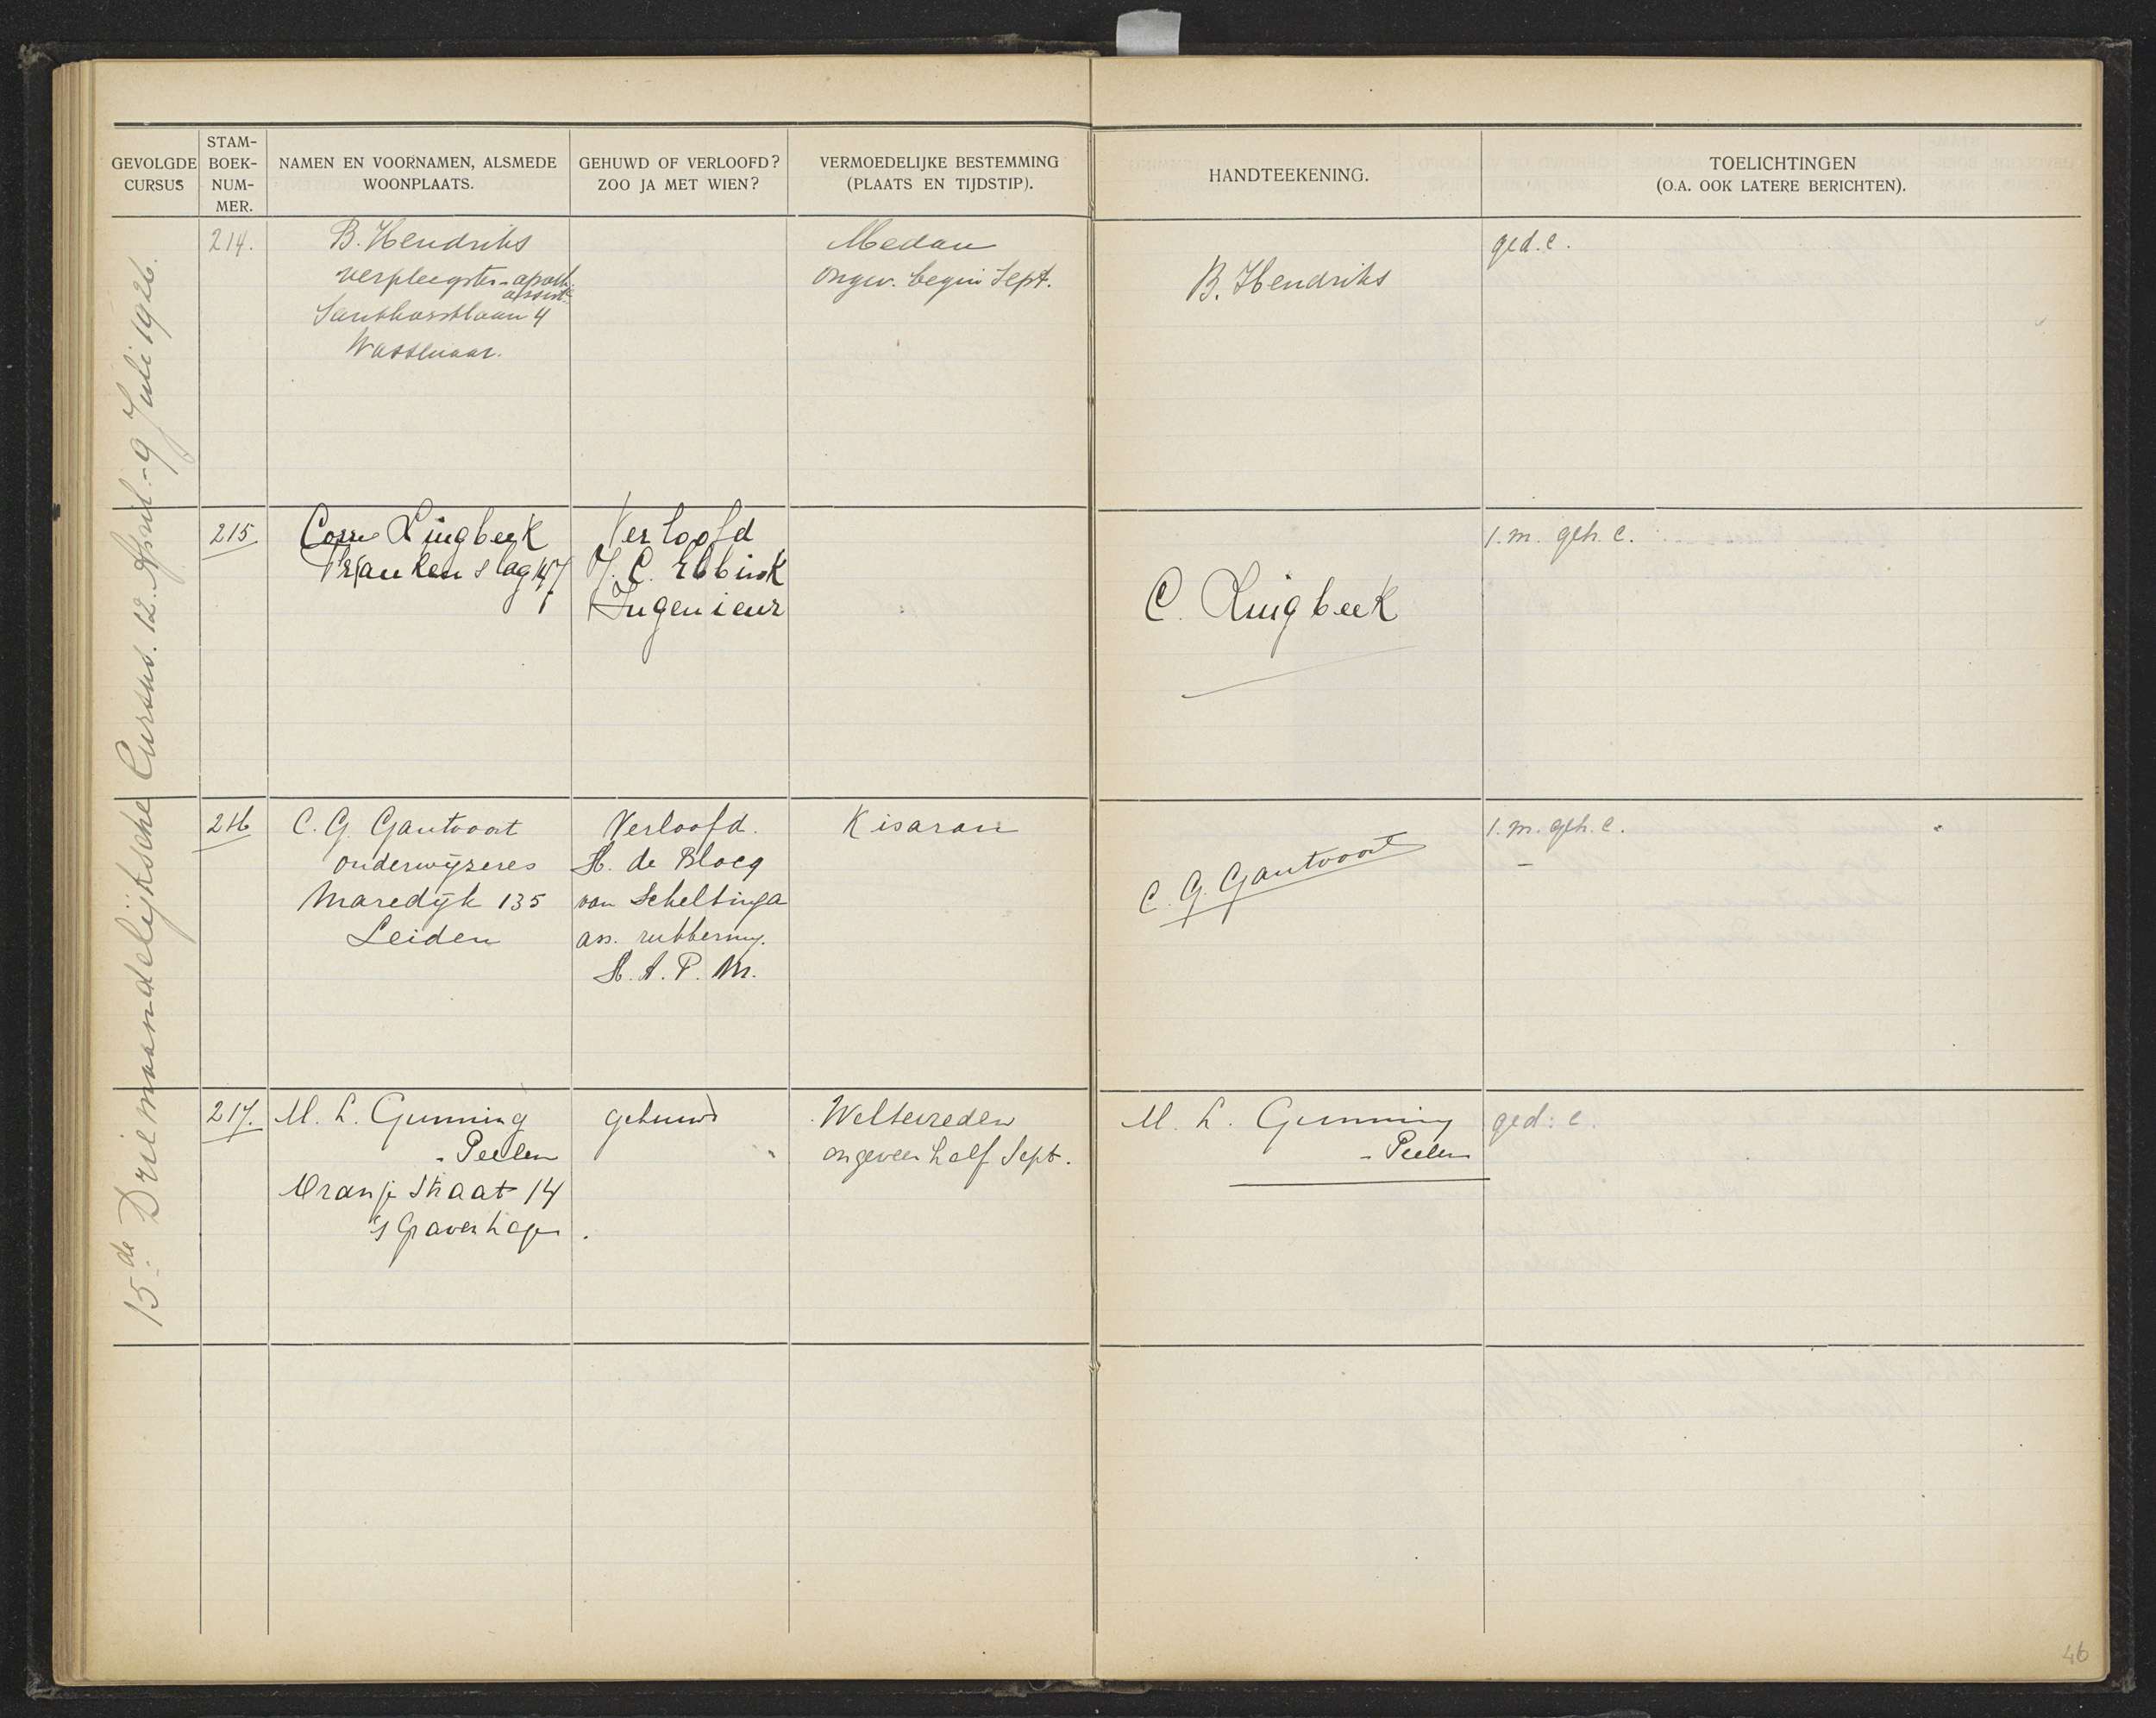 GEVOLGDE CURSUS
STAM-BOEK-NUM-MER.
NAMEN EN VOORNAMEN, ALSMEDE WOONPLAATS.
GEHUWD OF VERLOOFD? ZOO JA MET WIEN?
VERMOEDELIJKE BESTEMMING (PLAATS EN TIJDSTIP).
HANDTEEKENING.
TOELICHTINGEN (O.A. OOK LATERE BERICHTEN).
15de Driemaandelijksche Cursus. 12 April - 9 Juli 1926.
214.
B. Hendriks
verpleegster-apoth.
assist.
Santhorstlaan 4
Wassenaar.
Medan
ongev. begin Sept.
B. Hendriks
ged. c.
215.
Corrie Lingbeek
Frankenslag 147
Verloofd
J. C. Ebbink
Ingenieur
C. Lingbeek
1. m. geh. c.
216
C. G. Gantvoort
onderwijzeres
Maredijk 135
Leiden
Verloofd.
H. de Blocq
van Scheltinga
ass. rubberm.
H. A. P. M.
Kisaran
C. G. Gantvoort
1. m. geh. c.
–
217.
M. L. Gunning
- Peelen
Oranjestraat 14
's Gravenhage.
gehuwd
Weltevreden
ongeveer half Sept.
M. L. Gunning
- Peelen
ged: c.
46